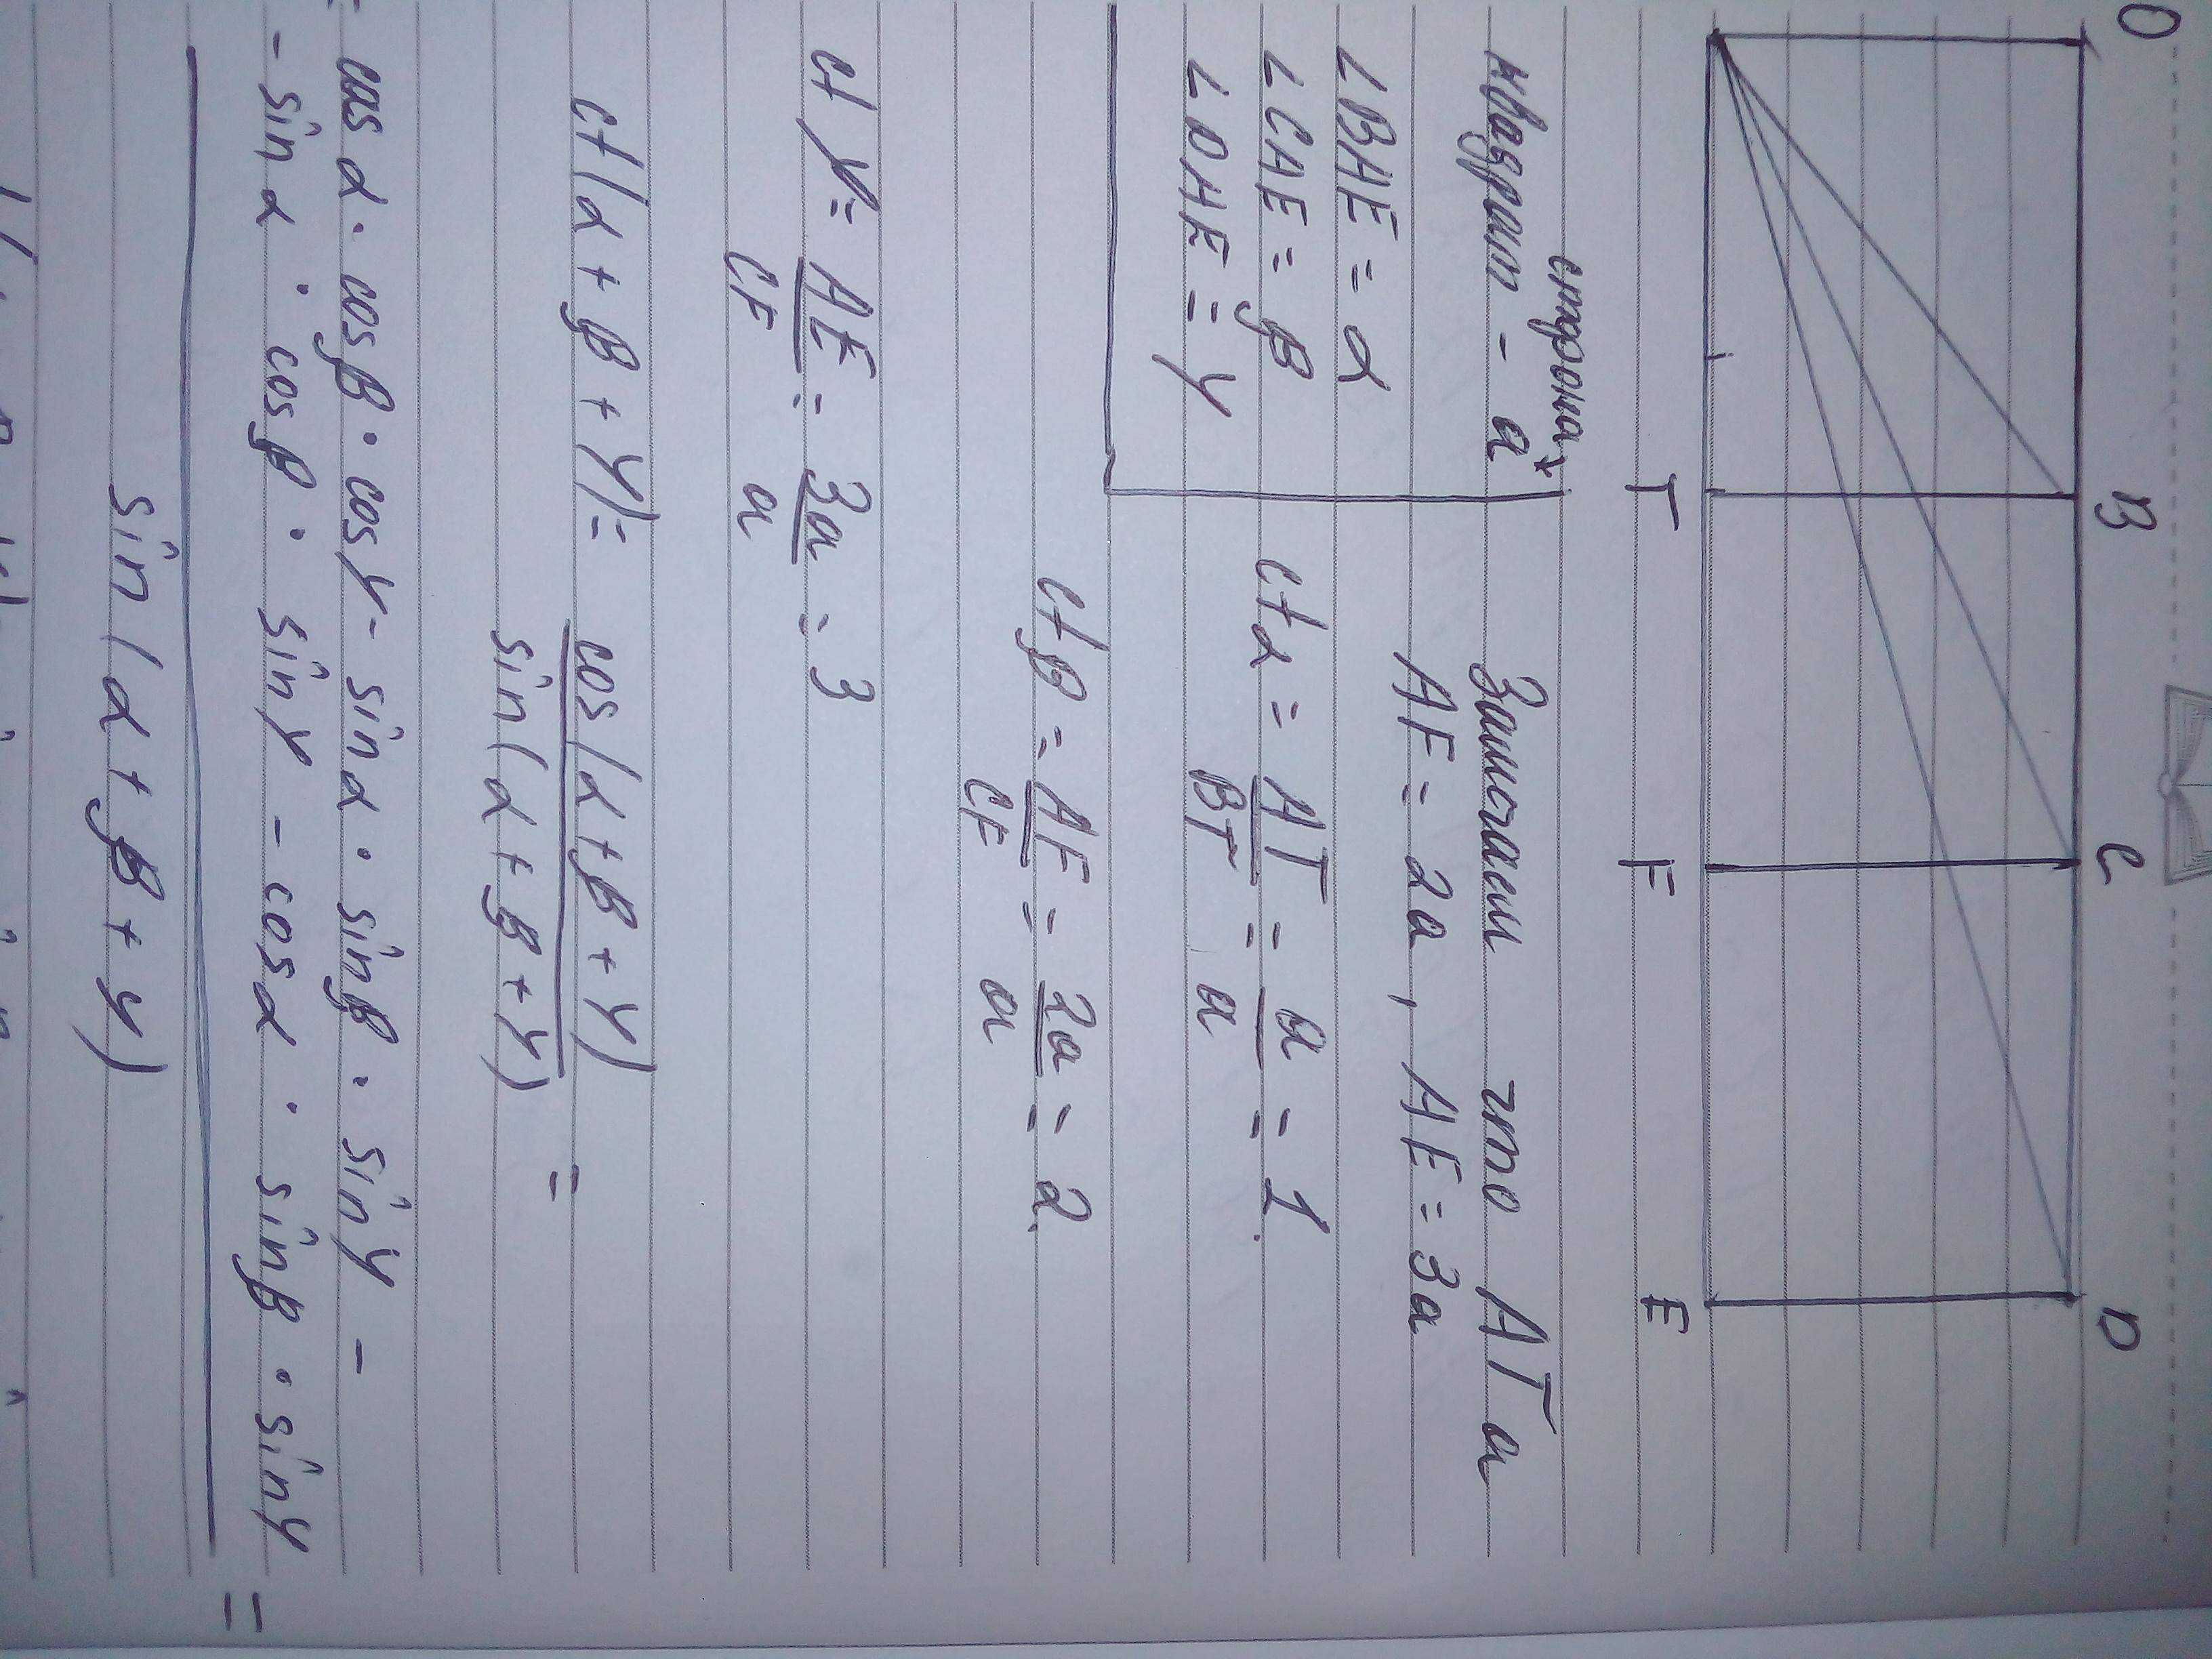 O B C D
T F E
сторона
квадрат - a
∠BAE = α
∠CAE = β
∠DAE = γ
Замечаем что AT a
AF = 2a, AE = 3a
ctα = AT/BT = a/a = 1.
ctβ = AF/CF = 2a/a = 2.
ctγ = AE/CF = 3a/a = 3
ct(α + β + γ) = cos(α+β+γ)/sin(α+β+γ) =
= cosα · cosβ · cosγ - sinα · sinβ · sinγ -
- sinα · cosβ · sinγ - cosα · sinβ · sinγ =
sin(α+β+γ)